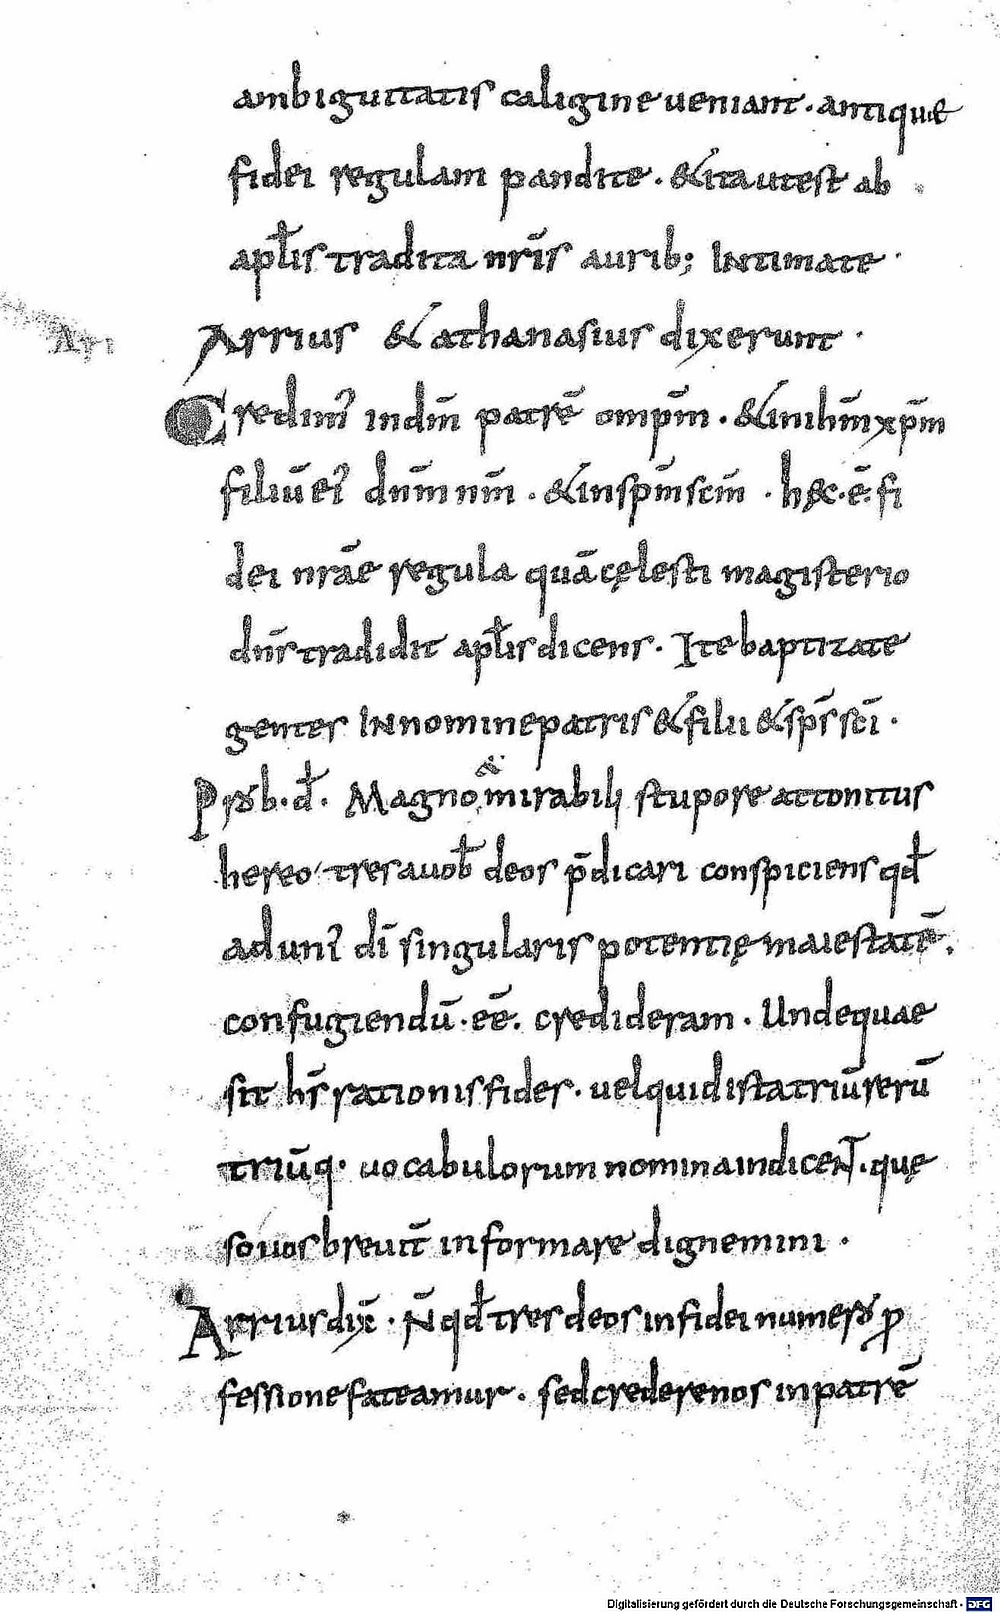 ambiguitatis caligine ueniant. antique
fidei regulam pandite. & ita ut est ab
apłis tradita nr̄is aurib; INtimate.
Ari
Arrius & athanasius dixerunt.
Credim' in dm̄ patrē omp̄m. & in ihm̄ xp̄m
filiū ei' dn̄m nm̄. & in sp̄m scm̄. hęc. ē. fi
dei nrāe regula quā cęlesti magisterio
dn̄s tradidit apłis dicens. Ite baptizate
gentes IN nomine patris & filii & sp̄s sc̄i.
Prob. d̄. Magno & mirabili stupore attonitus
hereo tres a uob̄ deos p̄dicari conspiciens qd̄
ad uni' dī singularis potentię maiestatē.
confugiendū. eē. credideram. Unde quae
sit hs̄ rationis fides. uel quid ista triū rerū
triūq. uocabulorum nomina indicent. quę
so uos breuit̄ informare dignemini.
Arrius dix̄. N̄ qd̄ tres deos in fidei numero p
fessione fateamur. sed credere nos in patrē
Digitalisierung gefördert durch die Deutsche Forschungsgemeinschaft - DFG